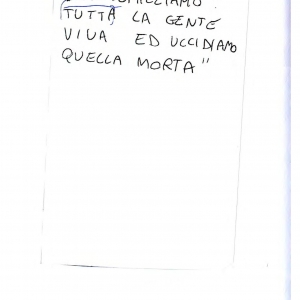 TUTTA LA GENTE
VIVA ED UCCIDIAMO
QUELLA MORTA"